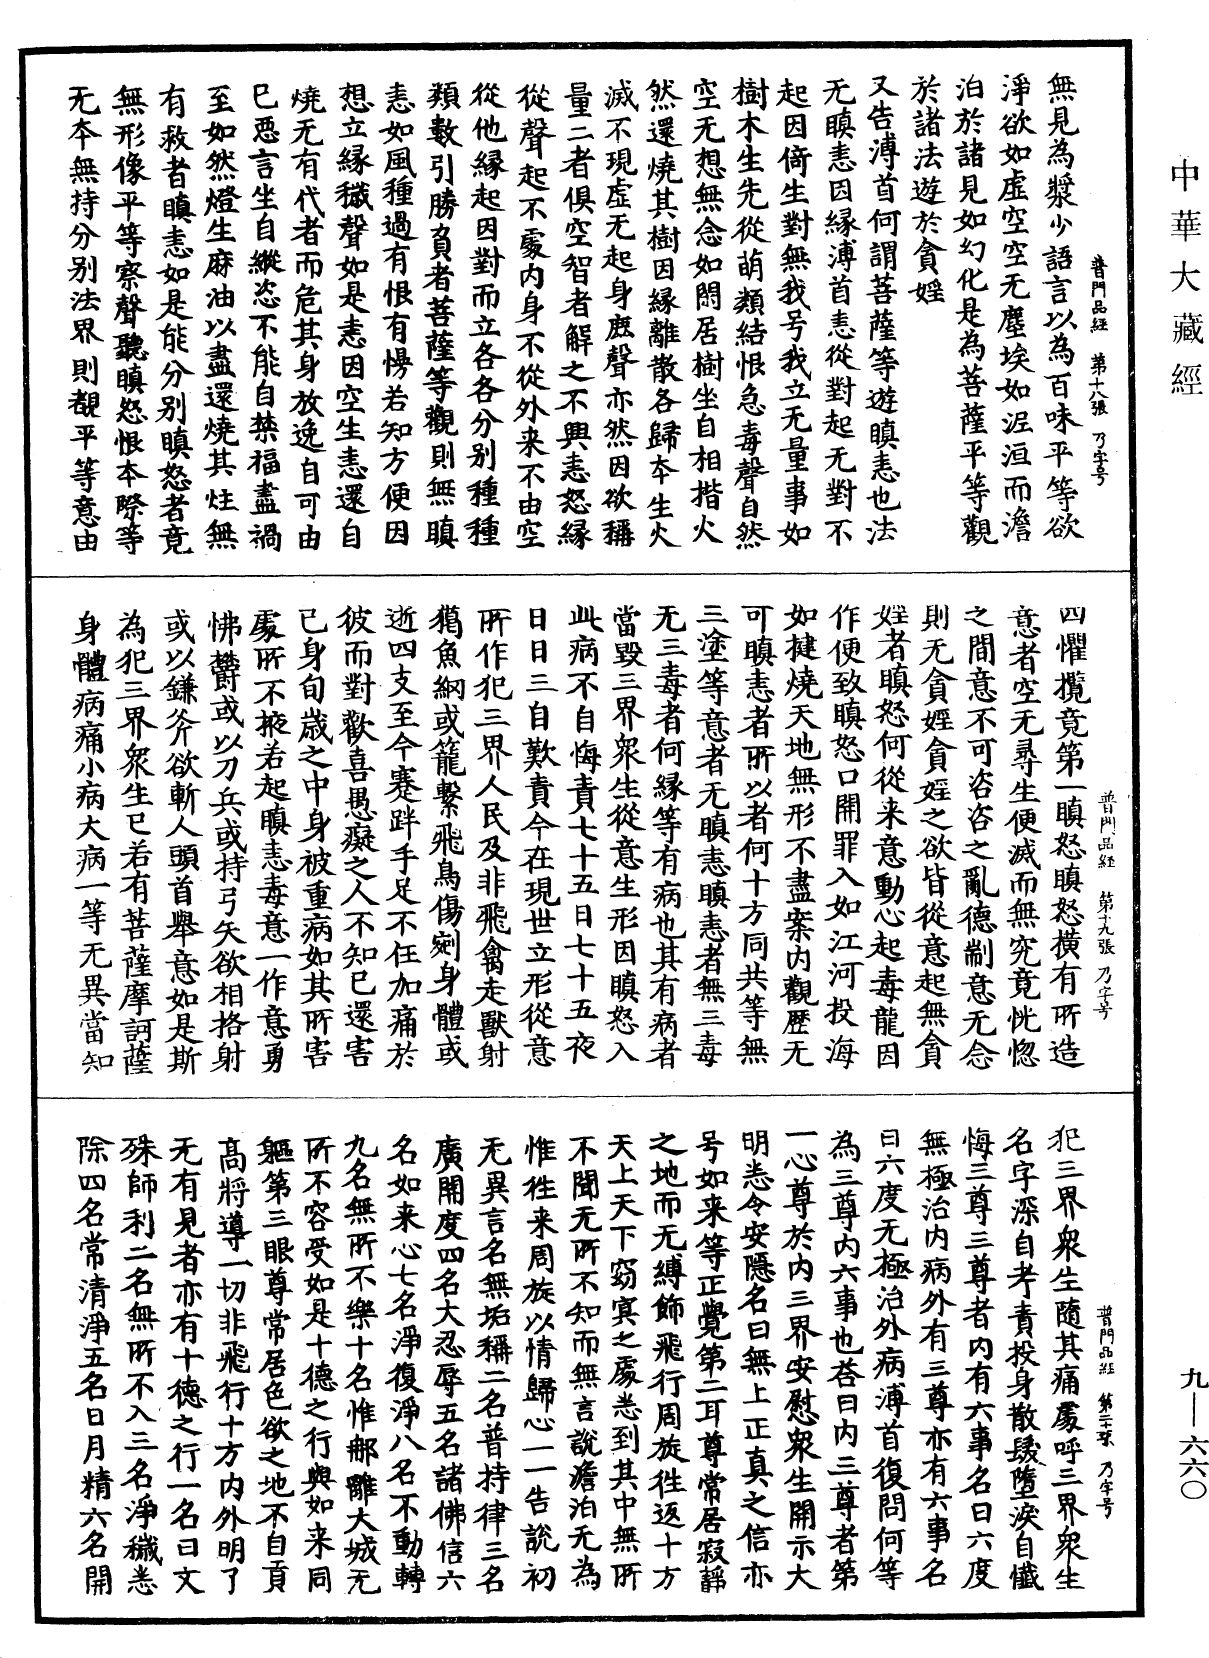 中華大藏經
九—六六〇
普門品經　第十八張　乃字号
無見為漿少語言以為百味平等欲
淨欲如虛空空无塵埃如泥洹而澹
泊於諸見如幻化是為菩薩平等觀
於諸法遊於貪婬
又告溥首何謂菩薩等遊瞋恚也法
无瞋恚因緣溥首恚從對起无對不
起因倚生對無我号我立无量事如
樹木生先從萌類結恨急毒聲自然
空无想無念如閑居樹坐自相揩火
然還燒其樹因緣離散各歸本生火
滅不現虛无起身麁聲亦然因欲稱
量二者俱空智者解之不興恚怒緣
從聲起不處内身不從外来不由空
從他緣起因對而立各各分别種種
類數引勝負者菩薩等觀則無瞋
恚如風種過有恨有慢若知方便因
想立緣穢聲如是恚因空生恚還自
燒无有代者而危其身放逸自可由
已惡言坐自縱恣不能自禁福盡禍
至如然燈生麻油以盡還燒其炷無
有救者瞋恚如是能分别瞋怒者竟
無形像平等察聲聽瞋怒恨本際等
无本無持分别法界則覩平等意由
普門品經　第十九張　乃字号
四懼攬竟第一瞋怒瞋怒橫有所造
意者空无尋生便滅而無究竟恍惚
之間意不可咨咨之亂德制意无念
則无貪婬貪婬之欲皆從意起無貪
婬者瞋怒何從来意動心起毒龍因
作便致瞋怒口開罪入如江河投海
如揵燒天地無形不盡案内觀歷无
可瞋恚者所以者何十方同共等無
三塗等意者无瞋恚瞋恚者無三毒
无三毒者何緣等有病也其有病者
當毀三界衆生從意生形因瞋怒入
此病不自悔責七十五日七十五夜
日日三自歎責今在現世立形從意
所作犯三界人民及非飛禽走獸射
獦魚網或籠繫飛鳥傷剜身體或
逝四支至今蹇跘手足不任加痛於
彼而對歡喜愚癡之人不知已還害
已身旬歲之中身被重病如其所害
處所不掖若起瞋恚毒意一作意勇
怫欝或以刀兵或持弓矢欲相挌射
或以鎌斧欲斬人頭首舉意如是斯
為犯三界衆生已若有菩薩摩訶薩
身體病痛小病大病一等无異當知
普門品經　第二十張　乃字号
犯三界衆生隨其痛處呼三界衆生
名字深自考責投身散髮墮淚自懺
悔三尊三尊者内有六事名曰六度
無極治内病外有三尊亦有六事名
曰六度无極治外病溥首復問何等
為三尊内六事也荅曰内三尊者第
一心尊於内三界安慰衆生開示大
明恙令安隱名曰無上正真之信亦
号如来等正覺第二耳尊常居寂靜
之地而无縛飾飛行周旋徃返十方
天上天下窈冥之處恙到其中無所
不聞无所不知而無言說澹泊无為
惟徃来周旋以情歸心一一告說初
无異言名無垢稱二名普持律三名
廣開度四名大忍辱五名諸佛信六
名如来心七名淨復淨八名不動轉
九名無所不樂十名惟郍離大城无
所不容受如是十德之行與如来同
軀第三眼尊常居色欲之地不自貢
高將導一切非飛行十方内外明了
无有見者亦有十德之行一名曰文
殊師利二名無所不入三名淨穢恙
除四名常清淨五名日月精六名開